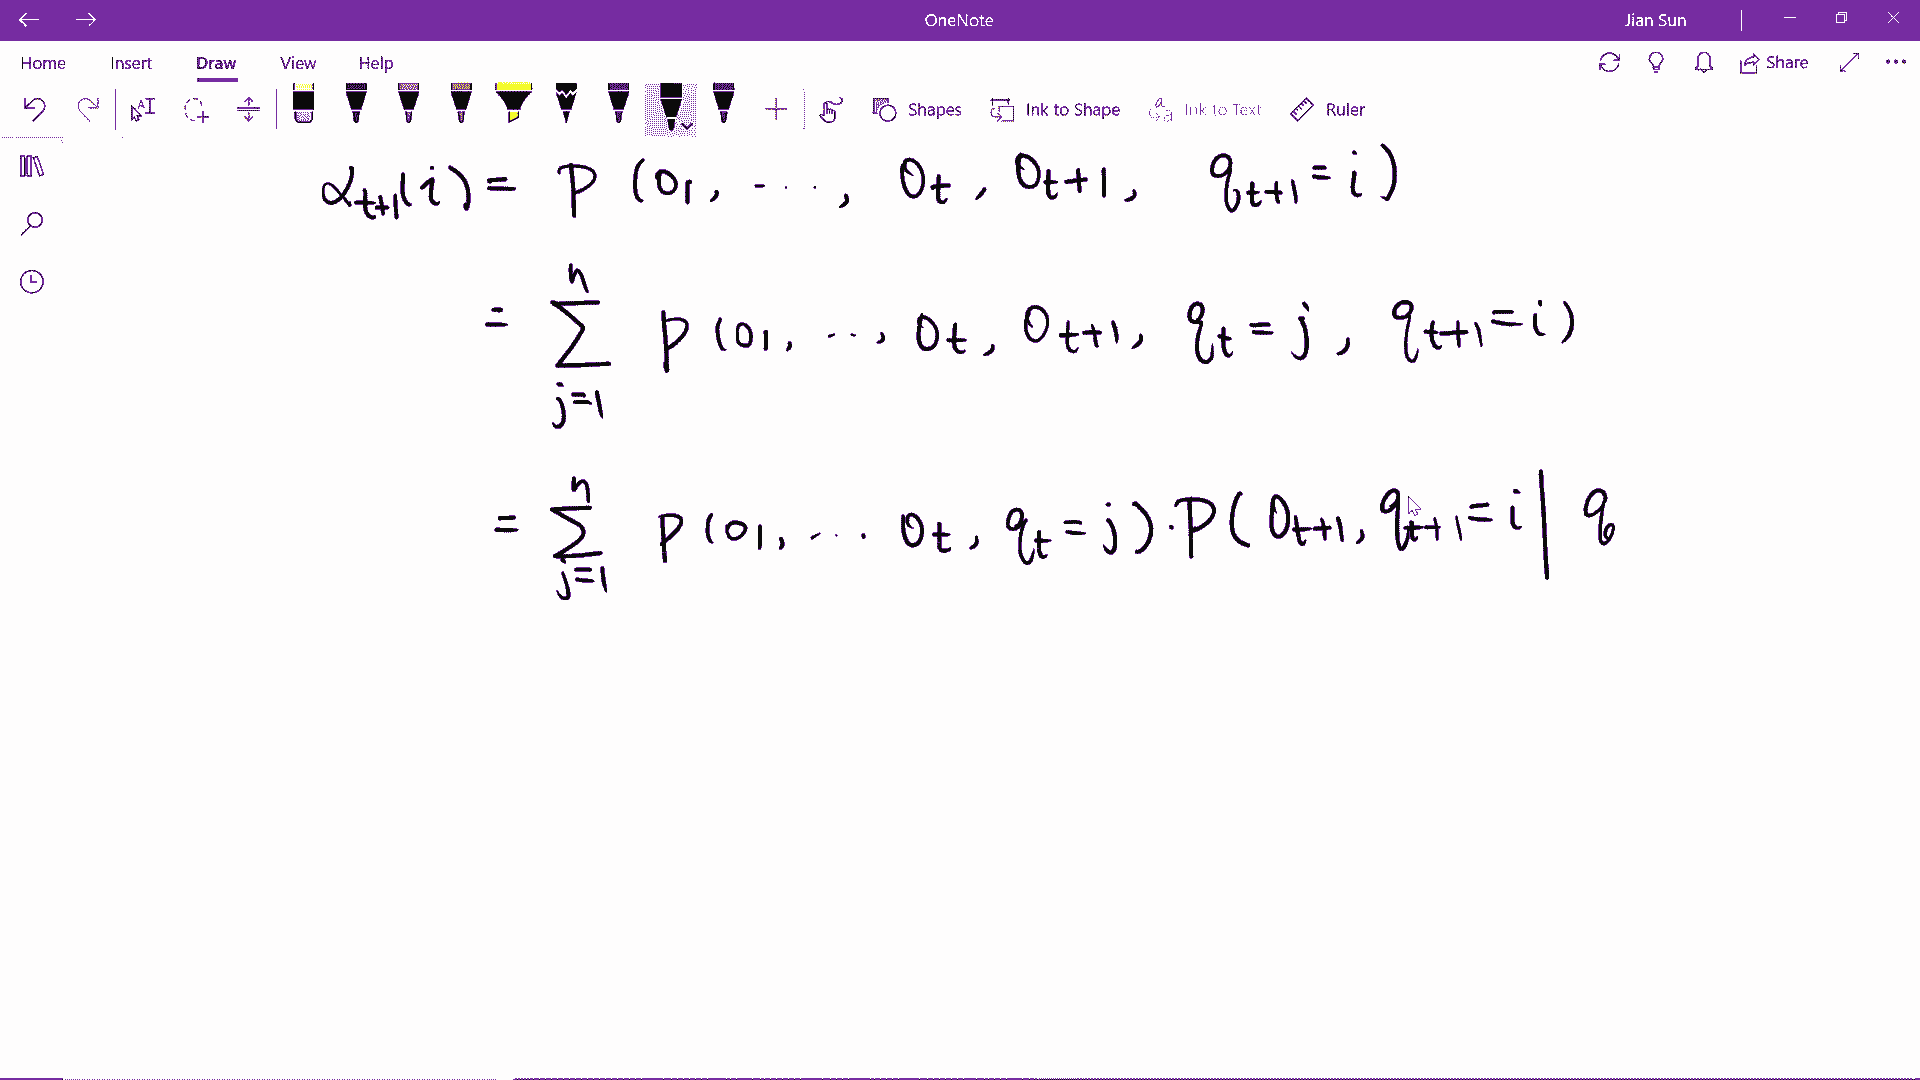 OneNote
Jian Sun
Home Insert Draw View Help
Share
Shapes Ink to Shape Ink to Text Ruler
α_{t+1}(i) = P(O_1, ...., O_t, O_{t+1}, q_{t+1} = i)
= \sum_{j=1}^{n} P(O_1, ..., O_t, O_{t+1}, q_t = j, q_{t+1} = i)
= \sum_{j=1}^{n} P(O_1, .... O_t, q_t = j) · P(O_{t+1}, q_{t+1} = i | q